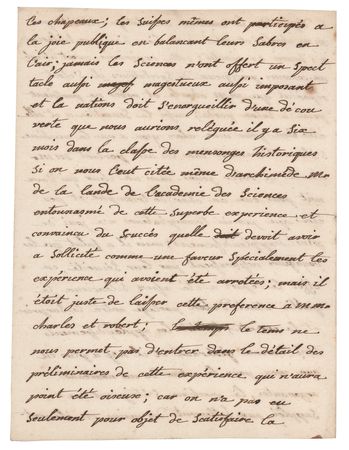 les chapeaux; les suisses mêmes ont participés a
la joie publique en balancant leurs Sabres en
l'air; jamais les Sciences n'ont offert un Spect
tacle aussi magestueux aussi imposant
et la nations doit S'energueillir d'une décou
verte que nous aurions reléguée il y a Six
mois dans la classe des mensonges historiques
Si on nous l'eut citée même d'archimède Mr
de la Lande de l'academie des Sciences
entousiasmé de cette Superbe experience et
convaincu du Succès quelle doit devoit avoir
a Sollicité comme une faveur Specialement les
expérience qui avoient été arretées; mais il
étoit juste de laisser cette preference a MMrs
charles et robert; le tems ne
nous permet pas d'entrer dans le détail des
préliminaires de cette expérience qui n'aura
point été oiseuse; car on n'a pas eu
Seulement pour objet de Scatisfaire la